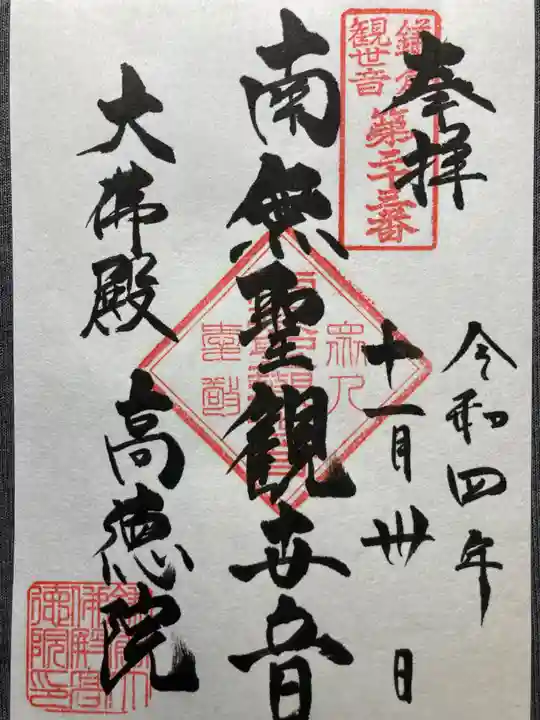 奉拝
鎌倉
観世音
第三十三番
令和四年
十一月卅日
南無聖観世音
大佛殿 高徳院